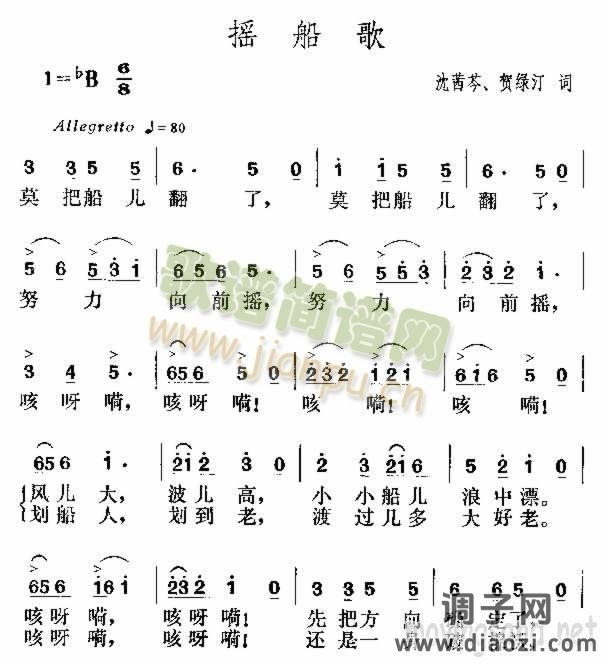 摇船歌
1=♭B 6/8
沈茜芩、贺绿汀 词
Allegretto ♩=80
3 35 5 6· 5 0 1 15 5 6· 5 0
莫把船儿翻了, 莫把船儿翻了,
5 6 531 656 5· 5 6 553 232 1·
努力向前摇, 努力向前摇,
3 4 5· 656 5 0 232 121 616 5 0
咳呀嗬, 咳呀嗬! 咳嗬! 咳嗬!
656 1· 212 3 0 2 3 216 5 2 5 0
风儿大, 波儿高, 小小船儿浪中漂。
划船人, 划到老, 渡过几多大好老。
656 161 232 1 0
咳呀嗬, 咳呀嗬! 先把方向
咳呀嗬, 咳呀嗬! 还是一
歌谱简谱网
www.jianpu.cn
调子网
www.diaozi.com